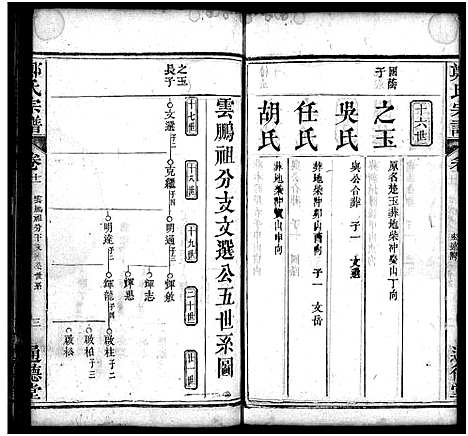 鄭氏宗譜
卷
十六世
國蔭子
之玉
原名楚玉葬地柴沖癸山丁向
吳氏
與公合葬 子一 文選
任氏
葬地柴沖卯山酉向 子一 文岳
胡氏
葬地柴沖寅山申向
通德堂
雲鵬祖分支文選公五世系圖
十七世
十八世
十九世
二十世
廿一世
之玉長子
文選 子一
克纘 子二
明通 子三
輝敏
輝志
輝思
明達 子二
輝龍 子三
啟桂 子二
啟柏 子三
啟松
鄭氏宗譜
卷十一
三
通德堂